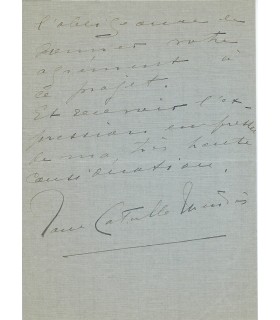 l'obligeance de
donner votre
agrément à
ce projet.
Et recevoir l'ex-
pression empressée
de ma très haute
considération.
Jane Catulle Mendès